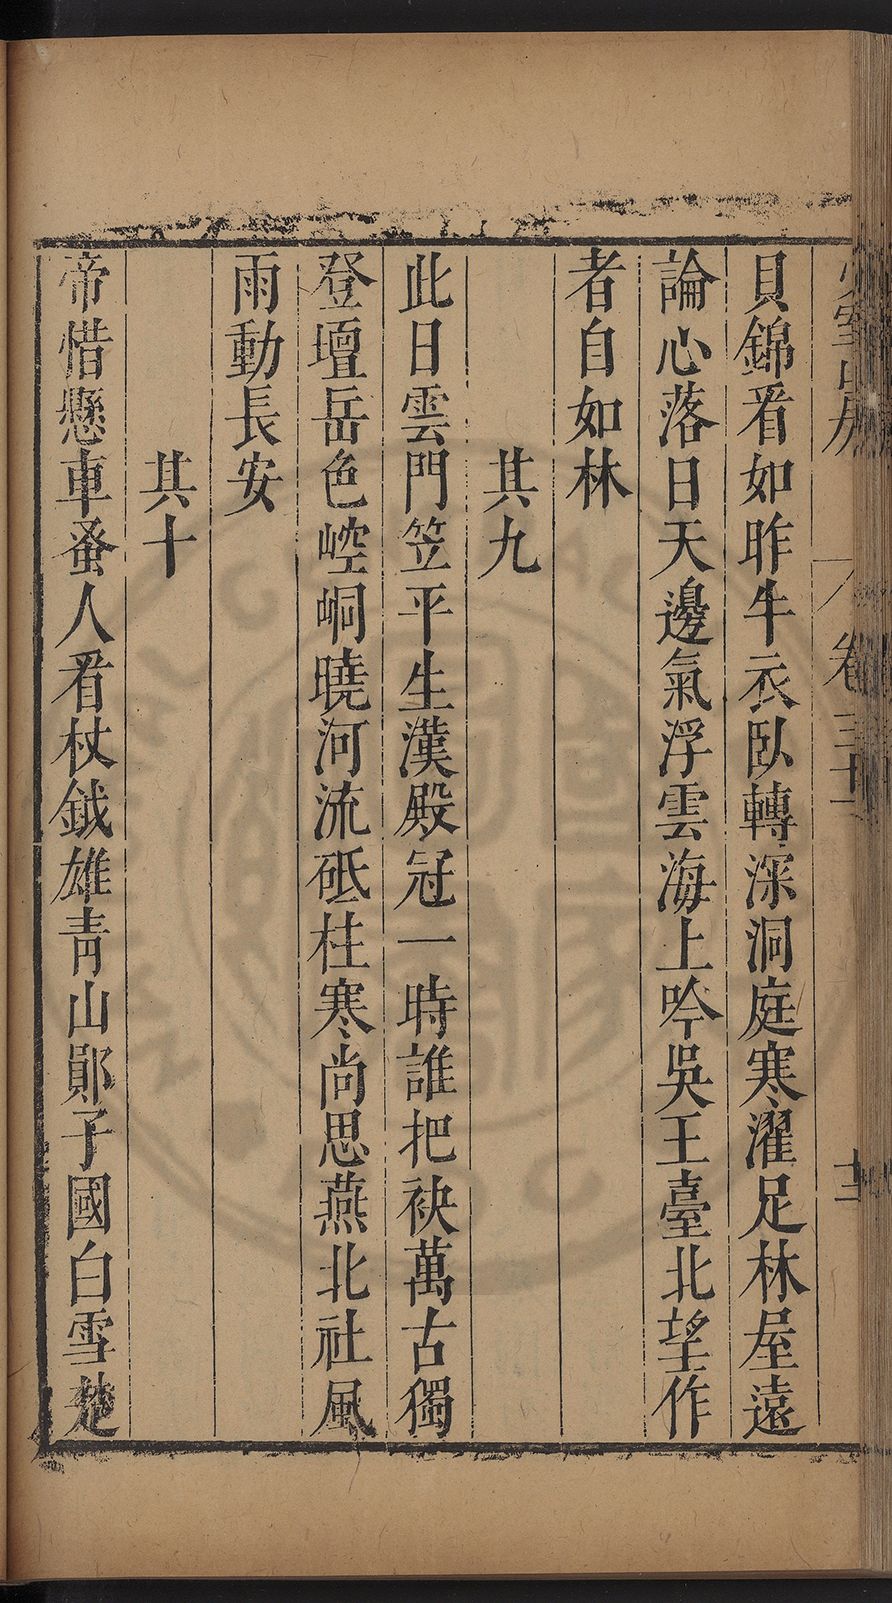 貝錦看如昨牛衣臥轉深洞庭寒濯足林屋遠
論心落日天邊氣浮雲海上吟吳王臺北望作
者自如林
其九
此日雲門笠平生漢殿冠一時誰把袂萬古獨
登壇岳色崆峒曉河流砥柱寒尚思燕北社風
雨動長安
其十
帝惜懸車蚤人看杖鉞雄青山鄖子國白雪楚
卷三十
十三